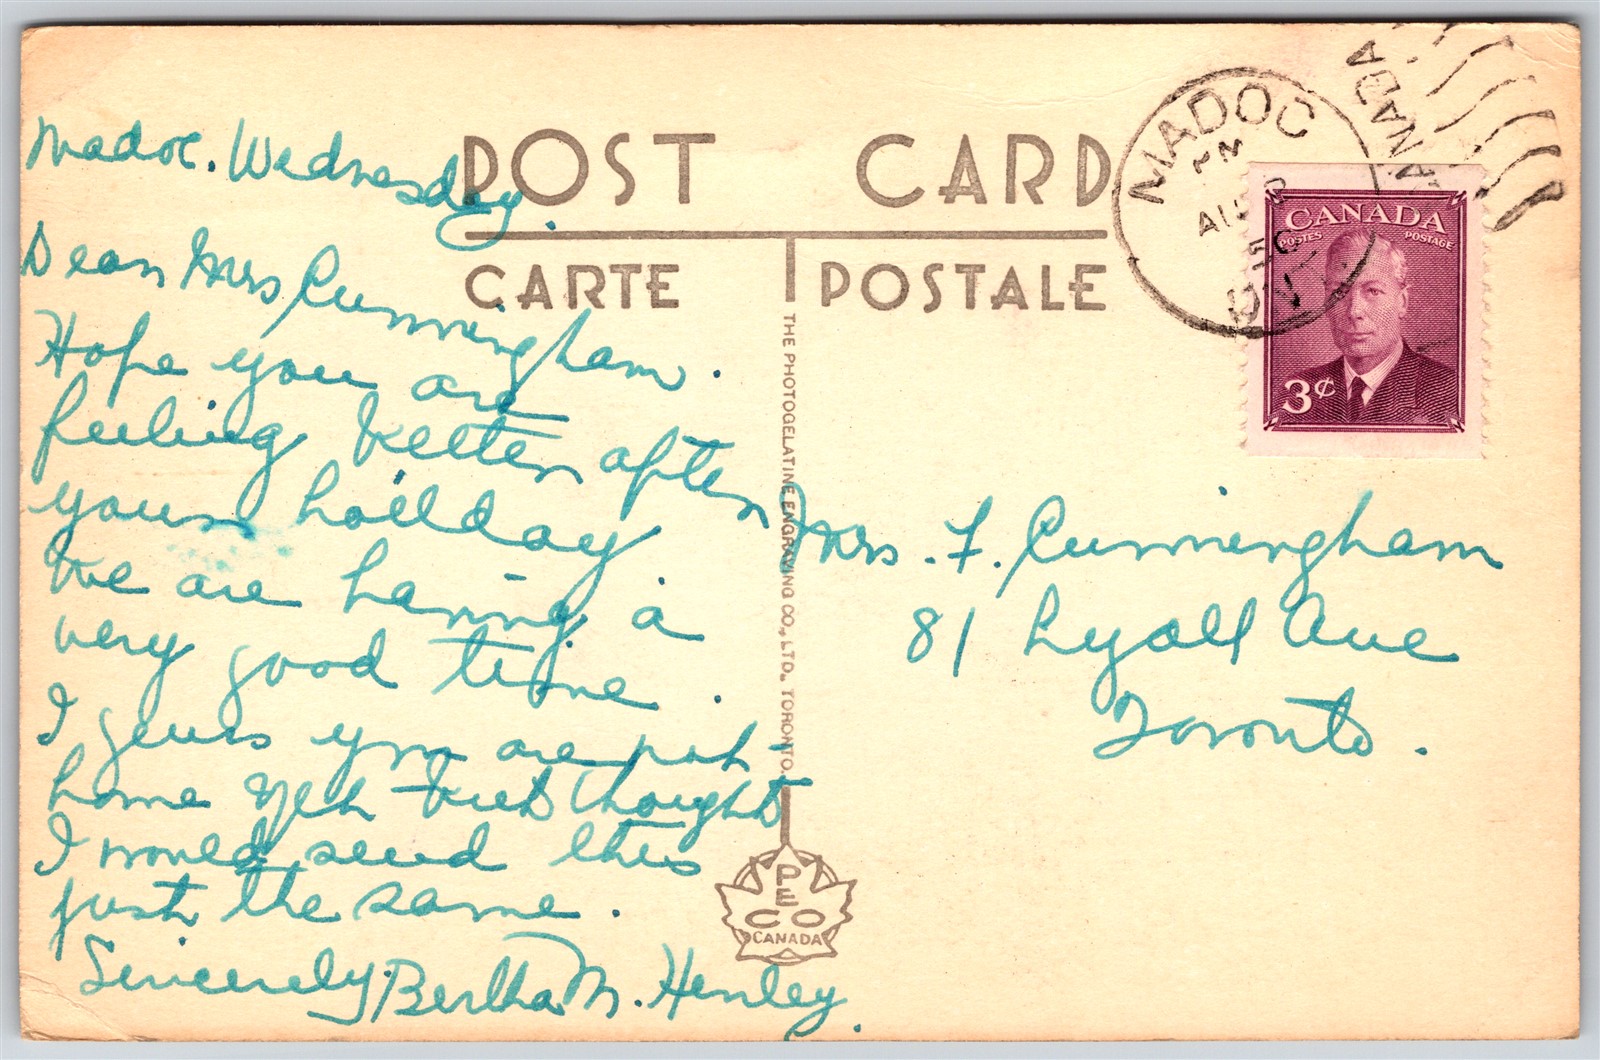 POST CARD
CARTE POSTALE
Madoc. Wednesday.
Dear Mrs Cunningham.
Hope you are
feeling better after
your holiday
We are having a
very good time.
I guess you are not
home yet but thought
I would send this
just the same.
Sincerely, Bertha M. Henley.
THE PHOTOGELATINE ENGRAVING CO., LTD. TORONTO.
PECO
CANADA
MADOC
PM
50
ONT
CANADA
CANADA
POSTES POSTAGE
3¢
Mrs. F. Cunningham
81 Lyall Ave
Toronto.